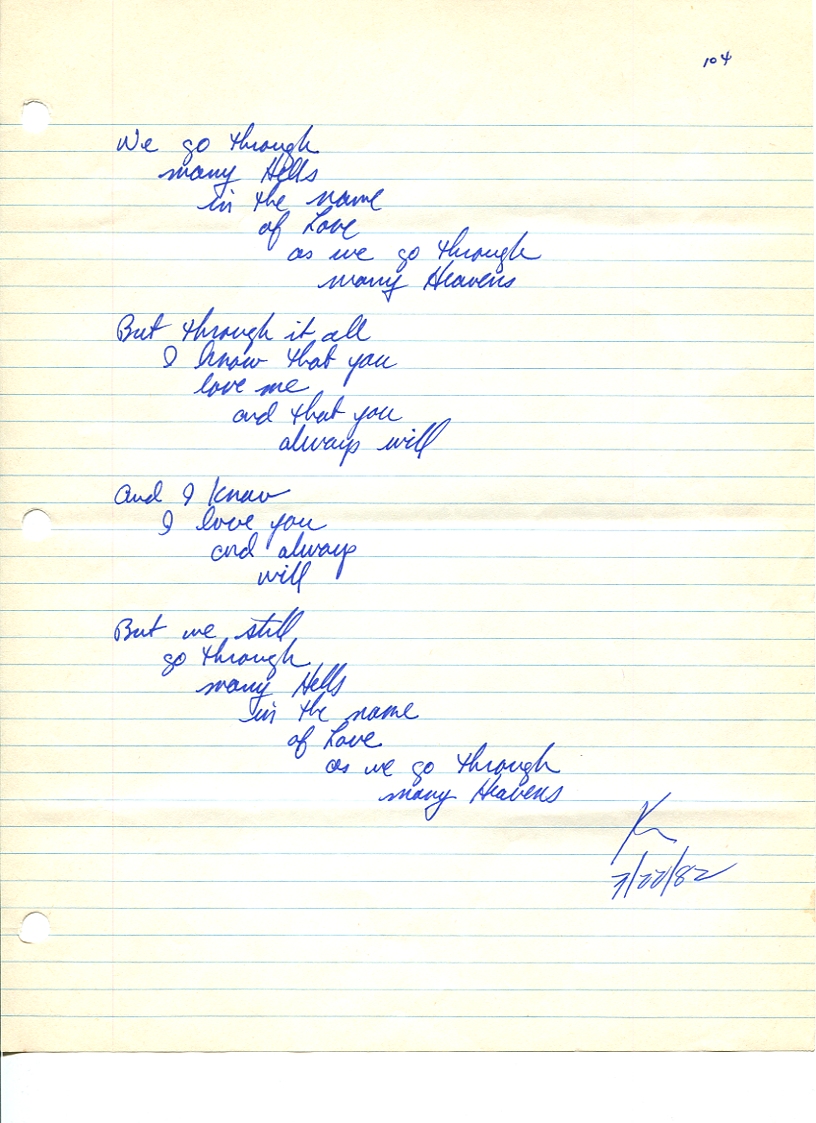 104
We go through
many Hells
in the name
of Love
as we go through
many Heavens
But through it all
I know that you
love me
and that you
always will
And I know
I love you
and always
will
But we still
go through
many Hells
in the name
of Love
as we go through
many Heavens
7/22/82